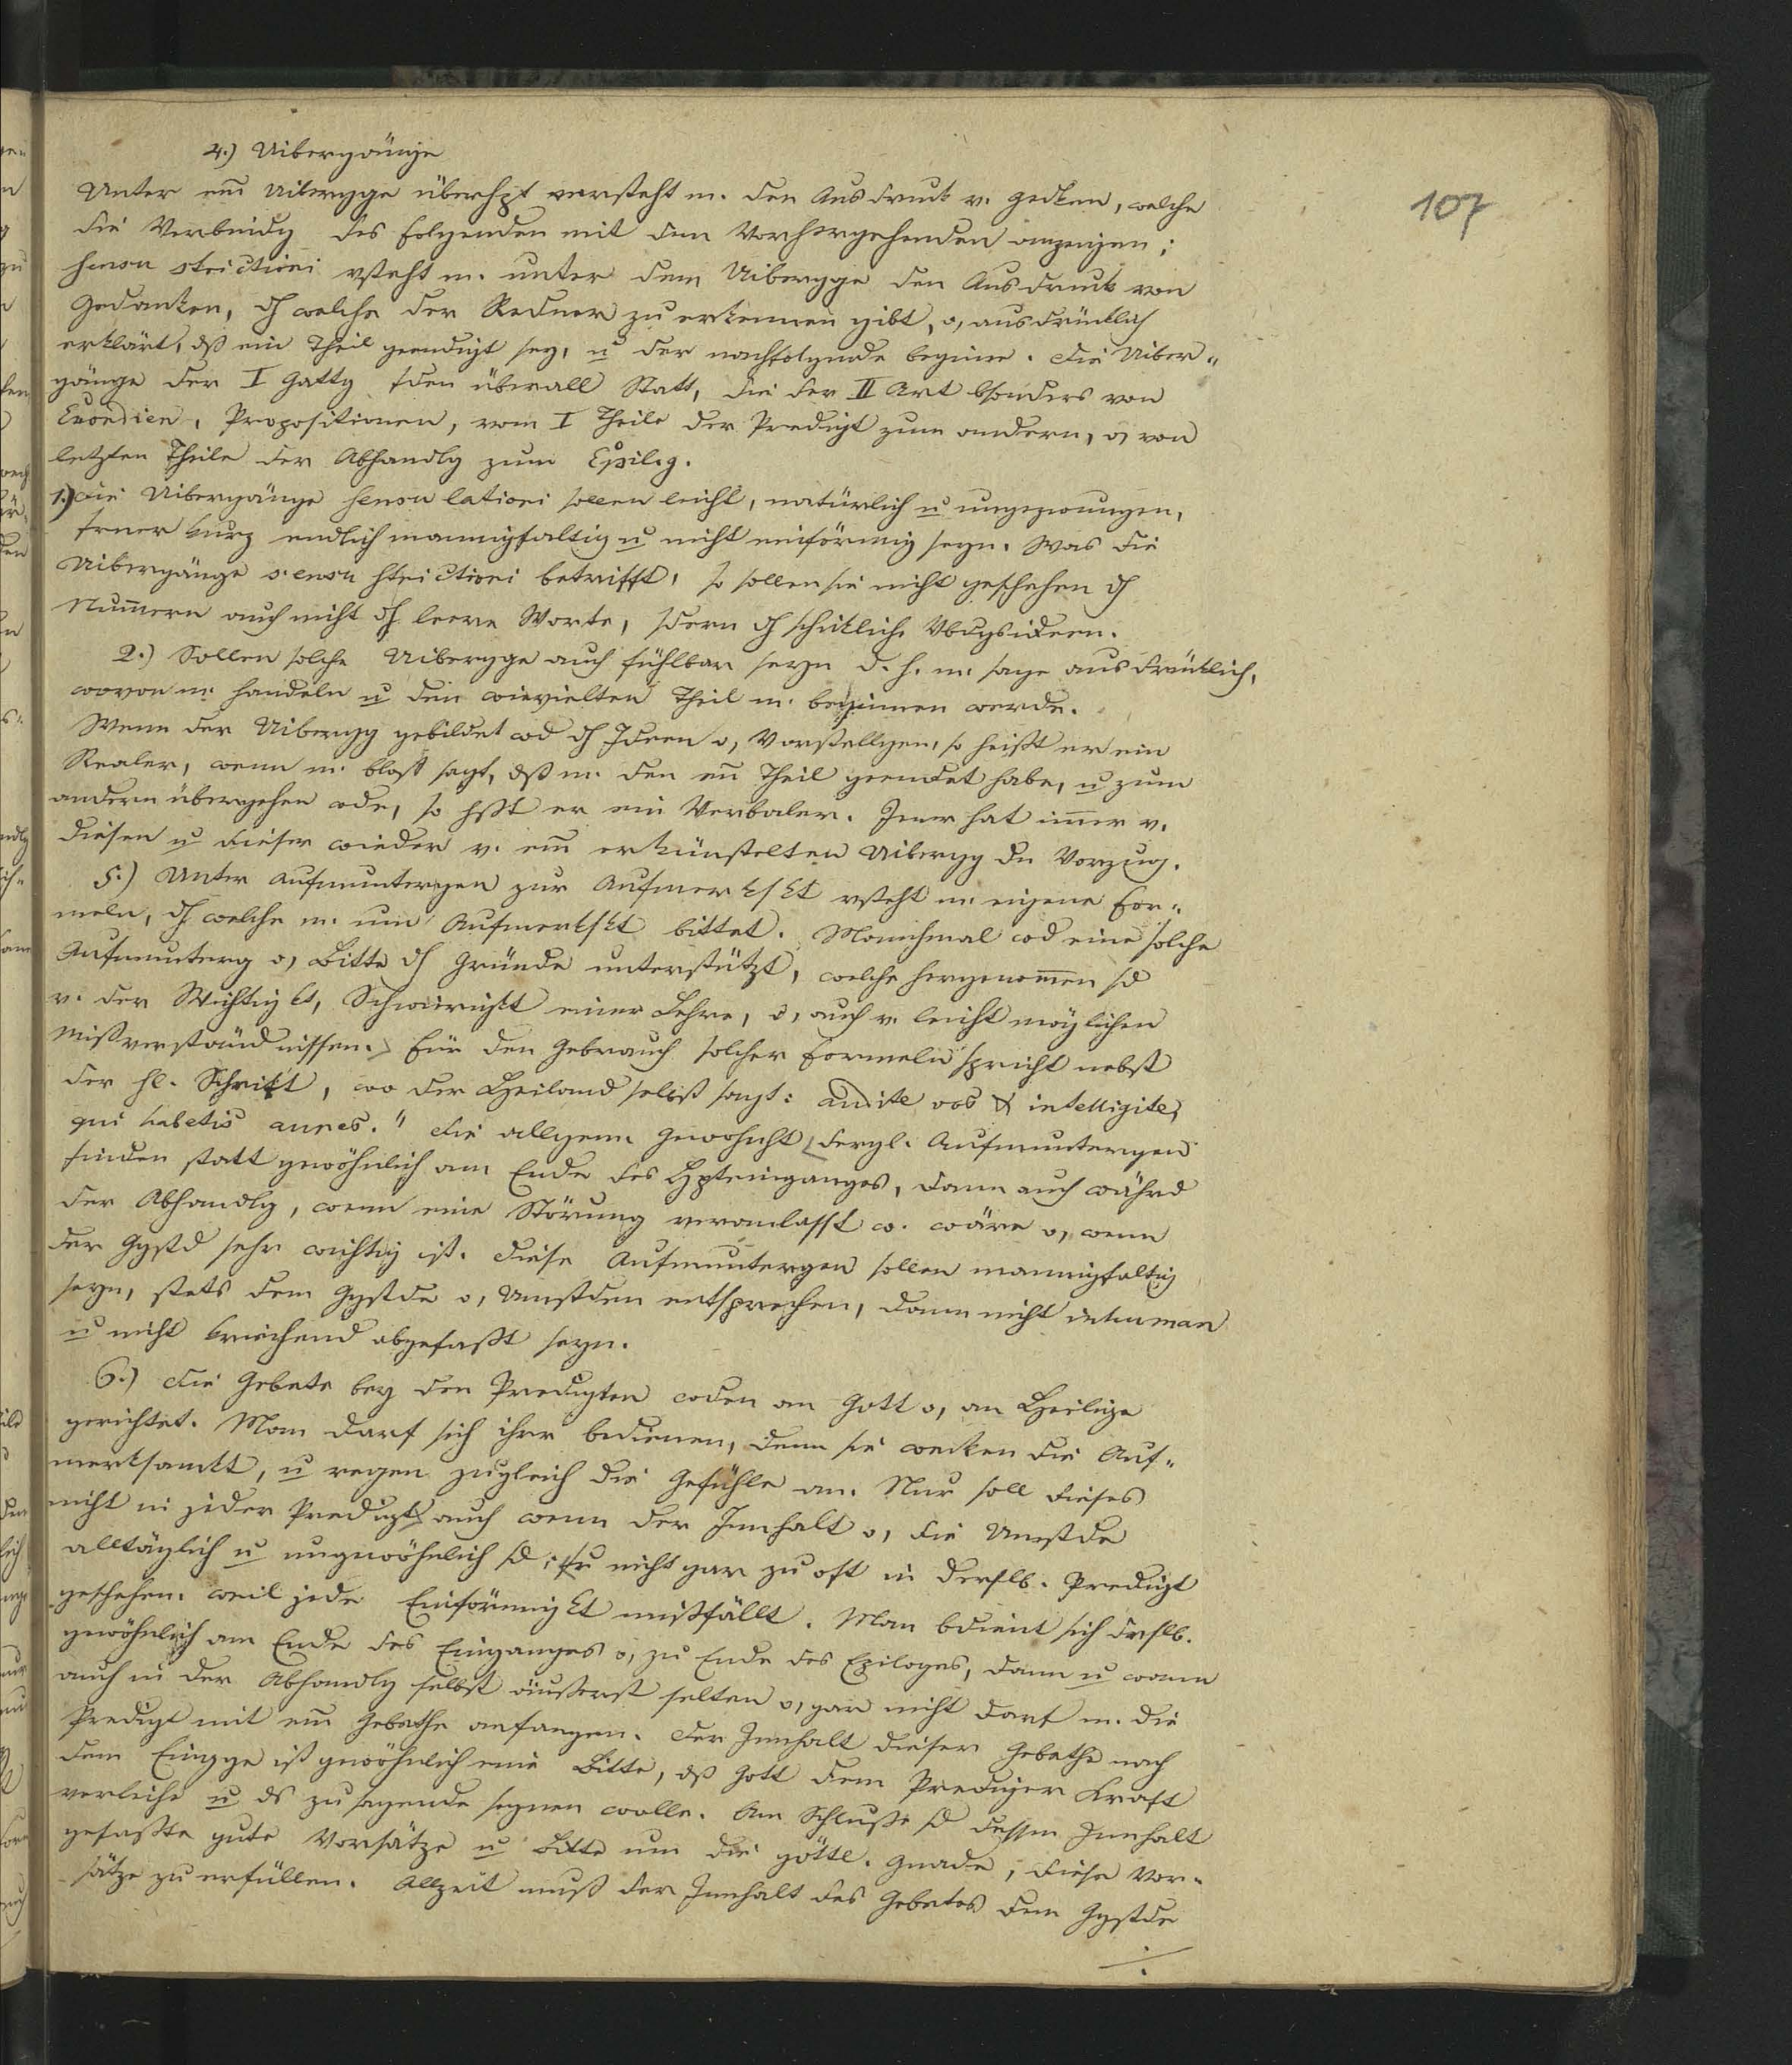 107
4.) Uibergänge
Unter em̄ Uibergge überhpt versteht m. den Ausdruck v. Gedken, welche
die Verbindg des Folgenden mit dem Vorhergehenden anzeigen;
sensu strictiori vsteht m. unter dem Uibergge den Ausdruck von
Gedanken, dh welche der Redner zu erkennen gibt, o, ausdrücklich
erklärt, dß ein Theil geendigt sey, u der nachfolgende beginne. Die Uiber-
gänge der I Gattg fden überall Statt, die der II Art bsonders von
Exordien, Propositionen, vom I Theile der Predigt zum andern, o, von
letzten Theile der Abhandlg zum Epilog.
1.) Die Uibergänge sensu latiori sollen leicht, natürlich u ungezwungen,
ferner kurz endlich mannigfaltig u nicht einförmig seyn. Was die
Uibergänge sensu strictiori betrifft, so sollen sie nicht geschehen dh
Num̄ern auch nicht dh leere Worte, sdern dh schickliche Vbdgsideen.
2.) Sollen solche Uibergge auch fühlbar seyn d. h. m. sage ausdrücklich,
wovon m. handeln u den wievielten Theil m. beginnen werde.
Wenn der Uibergg gebildet wd dh Ideen o, Vorstellgen, so heißt er ein
Realer, wenn m. bloß sagt, dß m. den en̄ Theil geendet habe, u zum
andern übergehen wde, so hßt er ein Verbaler. Jener hat im̄er v.
diesen u dieser wieder v. em̄ erkünstelten Uibergg dn Vorzug.
5.) Unter Aufmuntergen zur Aufmerkskt vsteht m. eigene For-
meln, dh welche m. um Aufmerkskt bittet. Manchmal wd eine solche
Aufmunterg o, Bitte dh Gründe unterstützt, welche hergenom̄en sd
v. der Wichtigkt, Schwierigkt einer Lehre, o, auch v. leicht möglichen
Mißverständnissen. Für den Gebrauch solcher Formeln spricht nebst
der hl. Schrift, wo der Heiland selbst sagt: audite vos & intelligite,
qui habetis aures." die allgem. Gewohnht dergl. Aufmuntergen
finden statt gewöhnlich am Ende des Hpteinganges, dann auch währd
der Abhandlg, wenn eine Störung veranlasst w. wäre o, wenn
der Ggstd sehr wichtig ist. Diese Aufmuntergen sollen mannigfaltig
seyn, stets dem Ggstde o, Umstden entsprechen, dann nicht inhuman
u nicht kriechend abgefaßt seyn.
6.) Die Gebete bey den Predigten wden an Gott o, an Heilige
gerichtet. Man darf sich ihrer bedienen, denn sie wecken die Auf-
merksamkt, u regen zugleich die Gefühle an. Nur soll dieses
nicht in jeder Predigt auch wenn der Innhalt o, die Umstde
alltäglich u ungewöhnlich sd; nicht gar zu oft in derslb. Predigt
geschehen. weil jede Einförmigkt mißfällt. Man bdient sich drslb.
gewöhnlich am Ende des Einganges o, zu Ende des Epiloges, dann u wann
auch in der Abhandlg selbst äußerst selten o, gar nicht darf m. die
Predigt mit em̄ Gebethe anfangen. Der Innhalt dieser Gebethe nach
dem Eingge ist gewöhnlich eine Bitte, dß Gott dem Prediger Kraft
verleihe u ds zu sagende segnen wolle. Am Schluße sd dessen Innhalt
gefaßte gute Vorsätze u Bitte um die göttl. Gnade, diese Vor-
sätze zu erfüllen. Allzeit muß der Innhalt des Gebetes dem Ggstde